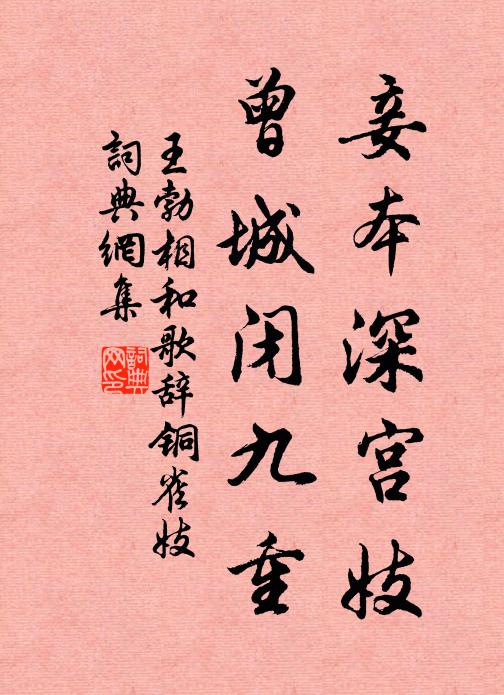 妾本深宫妓
曾城闭九重
王勃相和歌辞铜雀妓
詞典網集
詞典網印